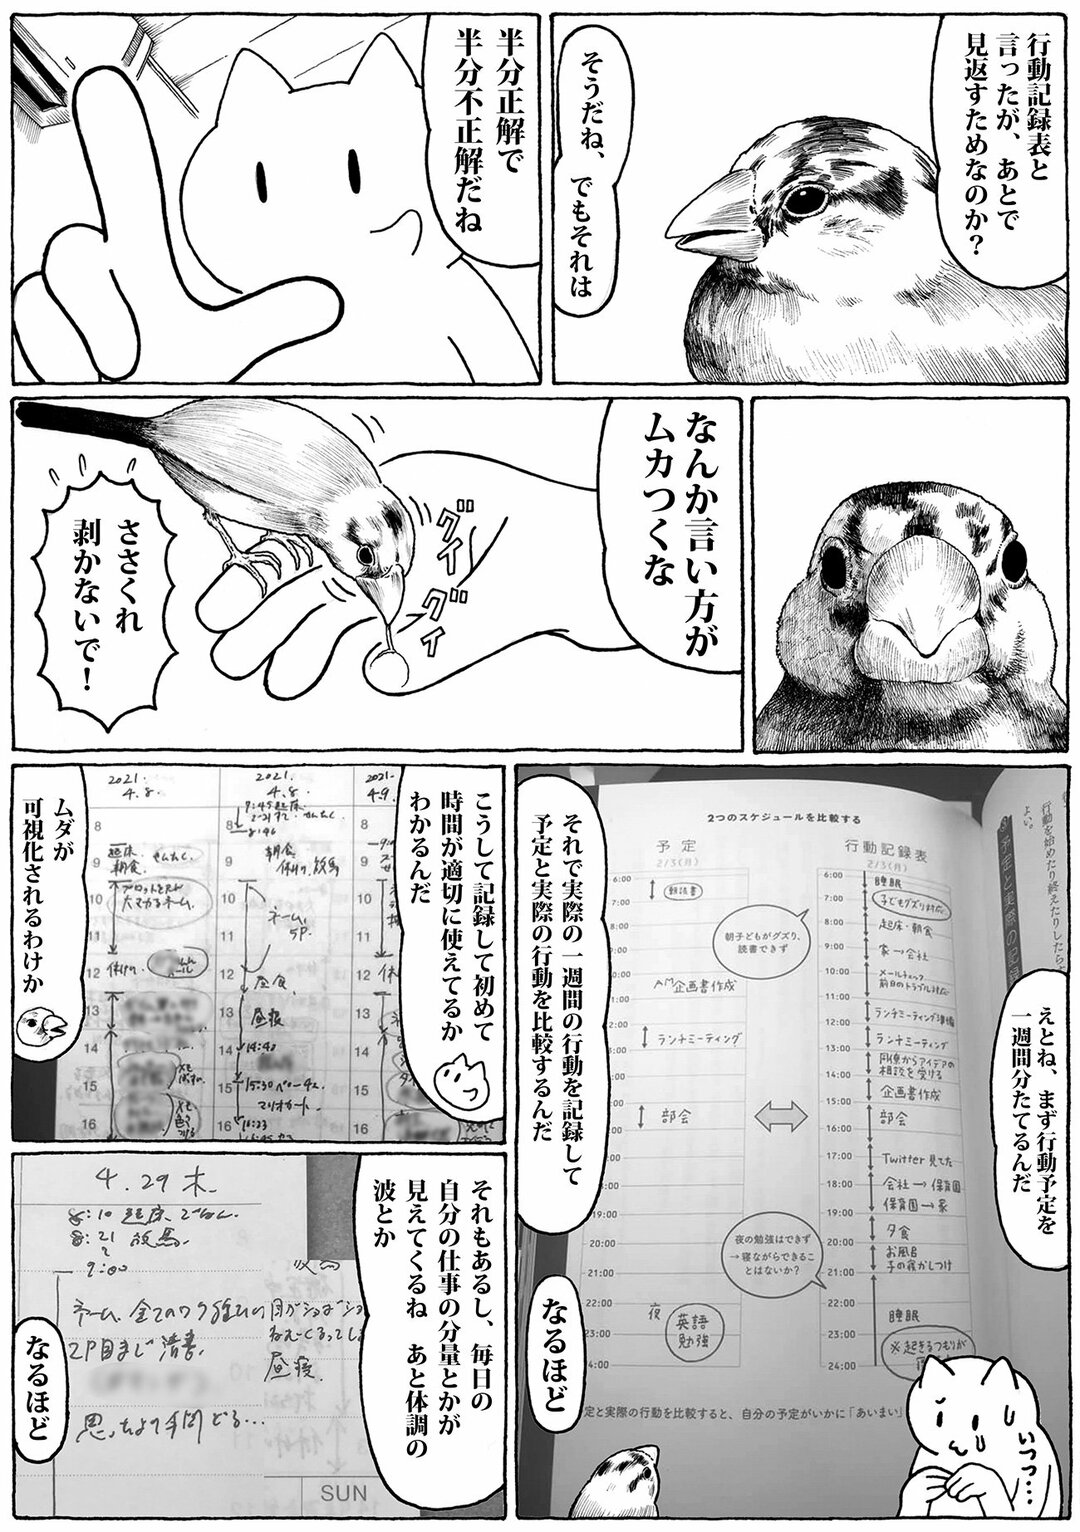 行動記録表と
言ったが、あとで
見返すためなのか?
そうだね、でもそれは
半分正解で
半分不正解だね
なんか言い方が
ムカつくな
グイ
グイ
ささくれ
剥かないで!
えとね、まず行動予定を
一週間分たてるんだ
それで実際の一週間の行動を記録して
予定と実際の行動を比較するんだ
2つのスケジュールを比較する
予定
2/3(月)
6:00
7:00
8:00
9:00
10:00
11:00
12:00
13:00
14:00
15:00
16:00
17:00
18:00
19:00
20:00
21:00
22:00
23:00
24:00
朝読書
AM企画書作成
ランチミーティング
部会
夜
英語
勉強
朝子どもがグズり、
読書できず
夜の勉強はできず
→寝ながらできるこ
とはないか?
行動記録表
2/3(月)
6:00
7:00
8:00
9:00
10:00
11:00
12:00
13:00
14:00
15:00
16:00
17:00
18:00
19:00
20:00
21:00
22:00
23:00
24:00
睡眠
子どもグズり対応
起床・朝食
家→会社
メールチェック
前日のトラブル対応
ランチミーティング準備
ランチミーティング
同僚からアイデアの
相談を受ける
企画書作成
部会
Twitter見てた
会社→保育園
保育園→家
夕食
お風呂
子の寝かしつけ
睡眠
※起きるつもりが
定と実際の行動を比較すると、自分の予定がいかに「あいまい」
よい。
行動を始めたり終えたりしたら
予定と実際の記録
なるほど
いつつ…
こうして記録して初めて
時間が適切に使えてるか
わかるんだ
ムダが
可視化されるわけか
2021.
4.8.
8
9
10
11
12
13
14
15
16
起床
朝食
2021.
4.8.
8
9
10
11
12
13
14
15
16
7:45起床
朝食
ネーム
5P.
昼食
昼寝
14:40
15:30
マリオカート
2021.
4.9.
それもあるし、毎日の
自分の仕事の分量とかが
見えてくるね あと体調の
波とか
4.29 木
8:10 起床
8:21 放馬
9:00
2P目まで清書
昼寝
思ったより手間どる…
SUN
なるほど